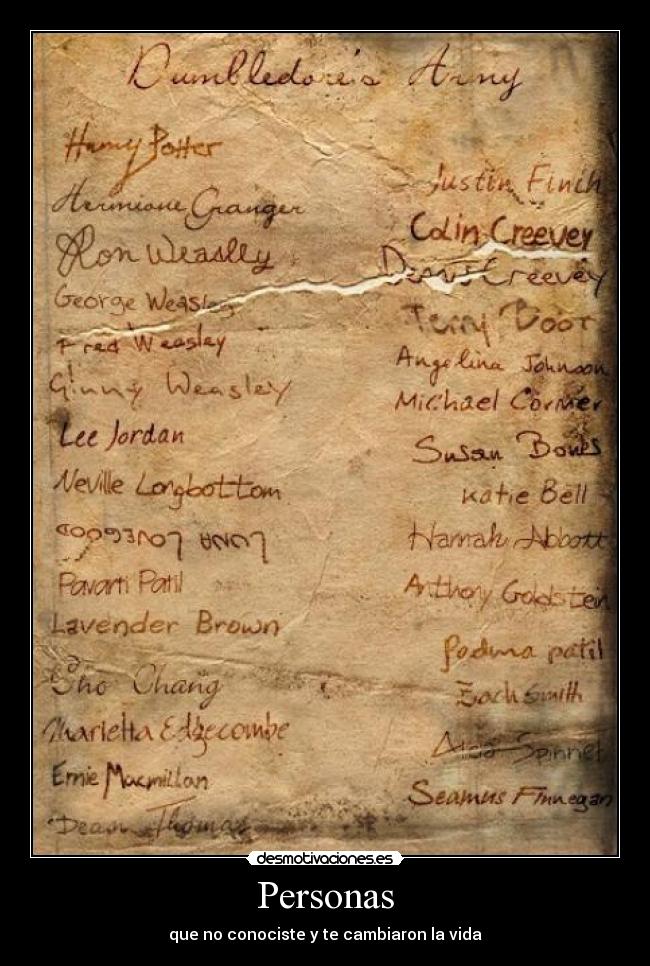 Dumbledore's Army
Harry Potter
Hermione Granger
Ron Weasley
George Weasley
Fred Weasley
Ginny Weasley
Lee Jordan
Neville Longbottom
LUNA LOVEGOOD
Parvarti Patil
Lavender Brown
Cho Chang
Marietta Edgecombe
Ernie Macmillan
Dean Thomas
Justin Finch
Colin Creevey
Dennis Creevey
Terry Boot
Angelina Johnson
Michael Corner
Susan Bones
Katie Bell
Hannah Abbott
Anthony Goldstein
Padma patil
Zach Smith
Alicia Spinnet
Seamus Finnegan
desmotivaciones.es
Personas
que no conociste y te cambiaron la vida